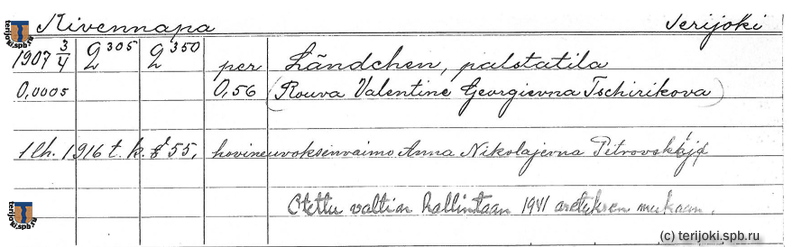 Kivennapa Terijoki
1907 3/4 2305 2350 per Ländchen, palstatila
0,0005 0,56 (Rouva Valentine Georgievna Tschirikova)
1 lh. 1916 t. k. § 55, hovineuvoksenvaimo Anna Nikolajevna Petrovskaja
Otettu valtion hallintaan 1941 asetuksen mukaan.
terijoki.spb.ru
terijoki.spb.ru
(c) terijoki.spb.ru